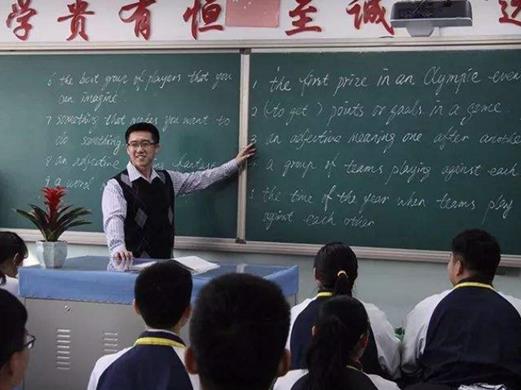 学贵有恒 至诚
6 the best group of players that you
can imagine
7 something that makes you want to
do something
8 an adjective
9 a word
1 the first prize in an Olympic even
2 (to get) points or goals in a game
3 an adjective meaning one after anothe
4 a group of teams playing against each
5 the time of the year when teams play
against each other